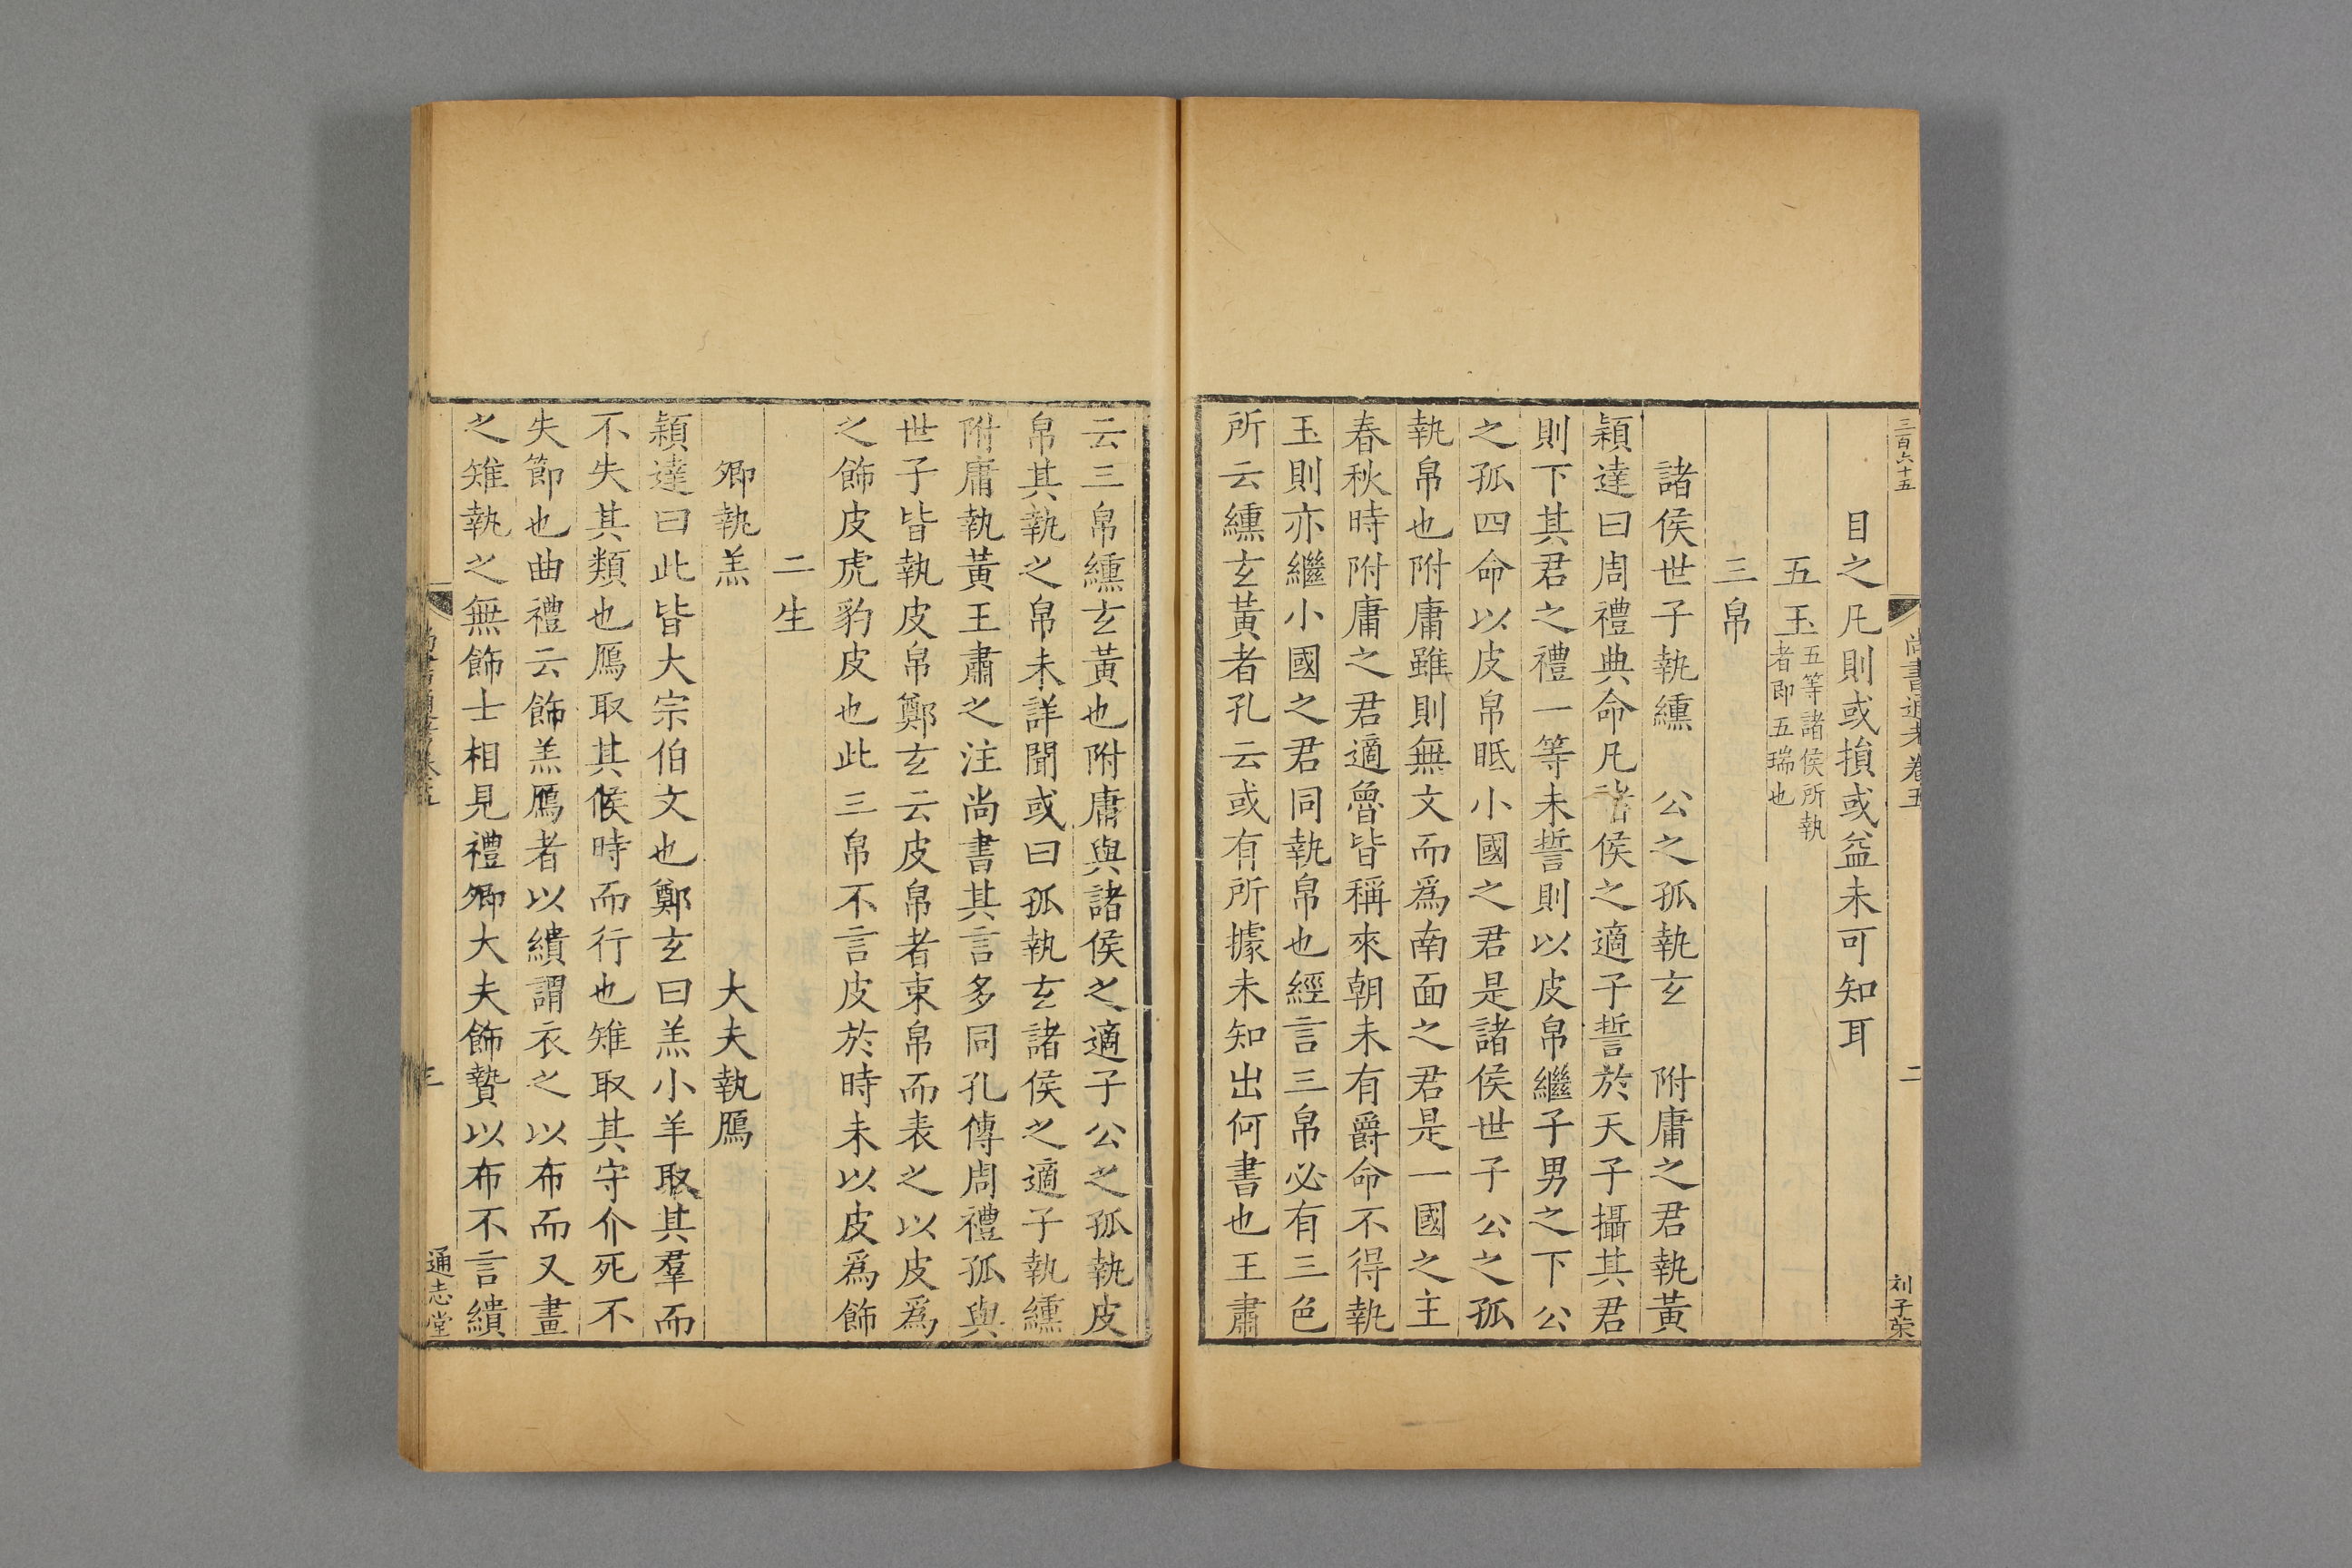 三百六十五
尚書通考卷五
二
刘子荣
目之凡則或損或益未可知耳
五玉五等諸侯所執者即五瑞也
三帛
諸侯世子執纁　公之孤執玄　附庸之君執黃
穎達曰周禮典命凡諸侯之適子誓於天子攝其君
則下其君之禮一等未誓則以皮帛繼子男之下公
之孤四命以皮帛眡小國之君是諸侯世子公之孤
執帛也附庸雖則無文而爲南面之君是一國之主
春秋時附庸之君適魯皆稱來朝未有爵命不得執
玉則亦繼小國之君同執帛也經言三帛必有三色
所云纁玄黃者孔云或有所據未知出何書也王肅
云三帛纁玄黃也附庸與諸侯之適子公之孤執皮
帛其執之帛未詳聞或曰孤執玄諸侯之適子執纁
附庸執黃王肅之注尚書其言多同孔傳周禮孤與
世子皆執皮帛鄭玄云皮帛者束帛而表之以皮爲
之飾皮虎豹皮也此三帛不言皮於時未以皮爲飾
二生
卿執羔　大夫執鴈
穎達曰此皆大宗伯文也鄭玄曰羔小羊取其羣而
不失其類也鴈取其候時而行也雉取其守介死不
失節也曲禮云飾羔鴈者以繢謂衣之以布而又畫
之雉執之無飾士相見禮卿大夫飾贄以布不言繢
三
通志堂